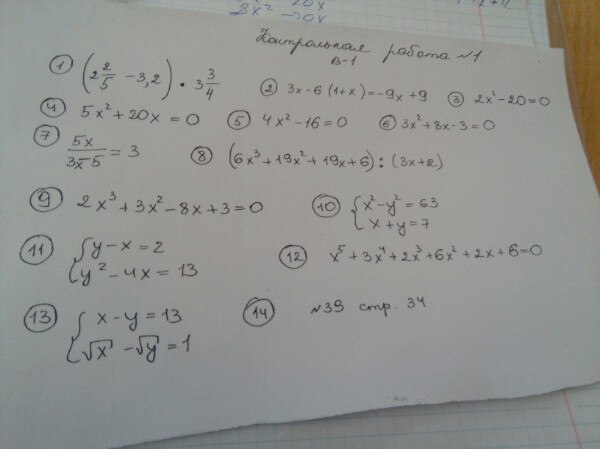 2x² -20x
Контрольная работа №1
В-1
① (2 2/5 - 3,2) · 3 3/4
② 3x - 6(1+x) = -9x + 9
③ 2x² - 20 = 0
④ 5x² + 20x = 0
⑤ 4x² - 16 = 0
⑥ 3x² + 8x - 3 = 0
⑦ 5x/3x-5 = 3
⑧ (6x³ + 19x² + 19x + 6) : (3x+2)
⑨ 2x³ + 3x² - 8x + 3 = 0
⑩ { x² - y² = 63
x + y = 7
⑪ { y - x = 2
y² - 4x = 13
⑫ x⁵ + 3x⁴ + 2x³ + 6x² + 2x + 6 = 0
⑬ { x - y = 13
√x - √y = 1
⑭ №39 стр. 34